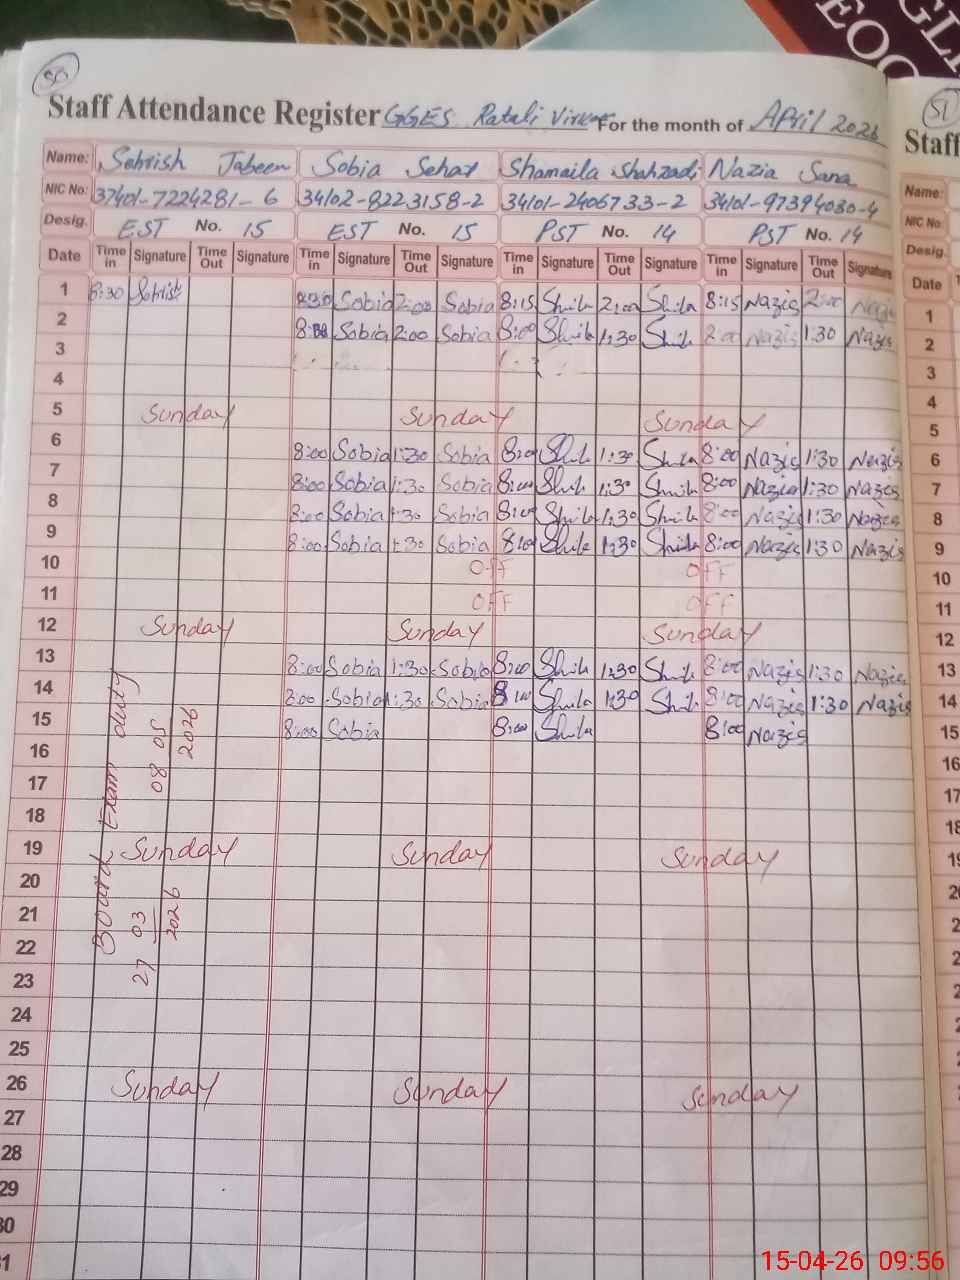 50
Staff Attendance Register GGES Ratali Virkan For the month of April 2026
51
Staff
Name: Sehrish Jabeen Sobia Sehar Shamaila Shahzadi Nazia Sana
Name:
NIC No: 37401-7224281-6 34102-8223158-2 34101-2406733-2 34101-97394080-4
NIC No
Desig. EST No. 15 EST No. 15 PST No. 14 PST No. 14
Desig.
Date Time in Signature Time Out Signature Time in Signature Time Out Signature Time in Signature Time Out Signature Time in Signature Time Out Signature
Date
1 8:30 Sehrish 8:30 Sobia 2:00 Sobia 8:15 Shila 2:00 Shila 8:15 Nazia 2:00 Nazia 1
2 8:00 Sobia 2:00 Sobia 8:00 Shila 1:30 Shila 2:00 Nazia 1:30 Nazia 2
3 3
4 4
5 Sunday Sunday Sunday 5
6 8:00 Sobia 1:30 Sobia 8:00 Shila 1:30 Shila 8:00 Nazia 1:30 Nazia 6
7 8:00 Sobia 1:30 Sobia 8:00 Shila 1:30 Shila 8:00 Nazia 1:30 Nazia 7
8 8:00 Sobia 1:30 Sobia 8:00 Shila 1:30 Shila 8:00 Nazia 1:30 Nazia 8
9 8:00 Sobia 1:30 Sobia 8:00 Shila 1:30 Shila 8:00 Nazia 1:30 Nazia 9
10 OFF OFF 10
11 OFF OFF 11
12 Sunday Sunday Sunday 12
13 8:00 Sobia 1:30 Sobia 8:00 Shila 1:30 Shila 8:00 Nazia 1:30 Nazia 13
14 8:00 Sobia 1:30 Sobia 8:00 Shila 1:30 Shila 8:00 Nazia 1:30 Nazia 14
15 8:00 Sobia 8:00 Shila 8:00 Nazia 15
Board Exam duty
27 03 2026
08 05 2026
16 16
17 17
18 18
19 Sunday Sunday Sunday
20
21
22
23
24
25
26 Sunday Sunday Sunday
27
28
29
30
31
15-04-26 09:56